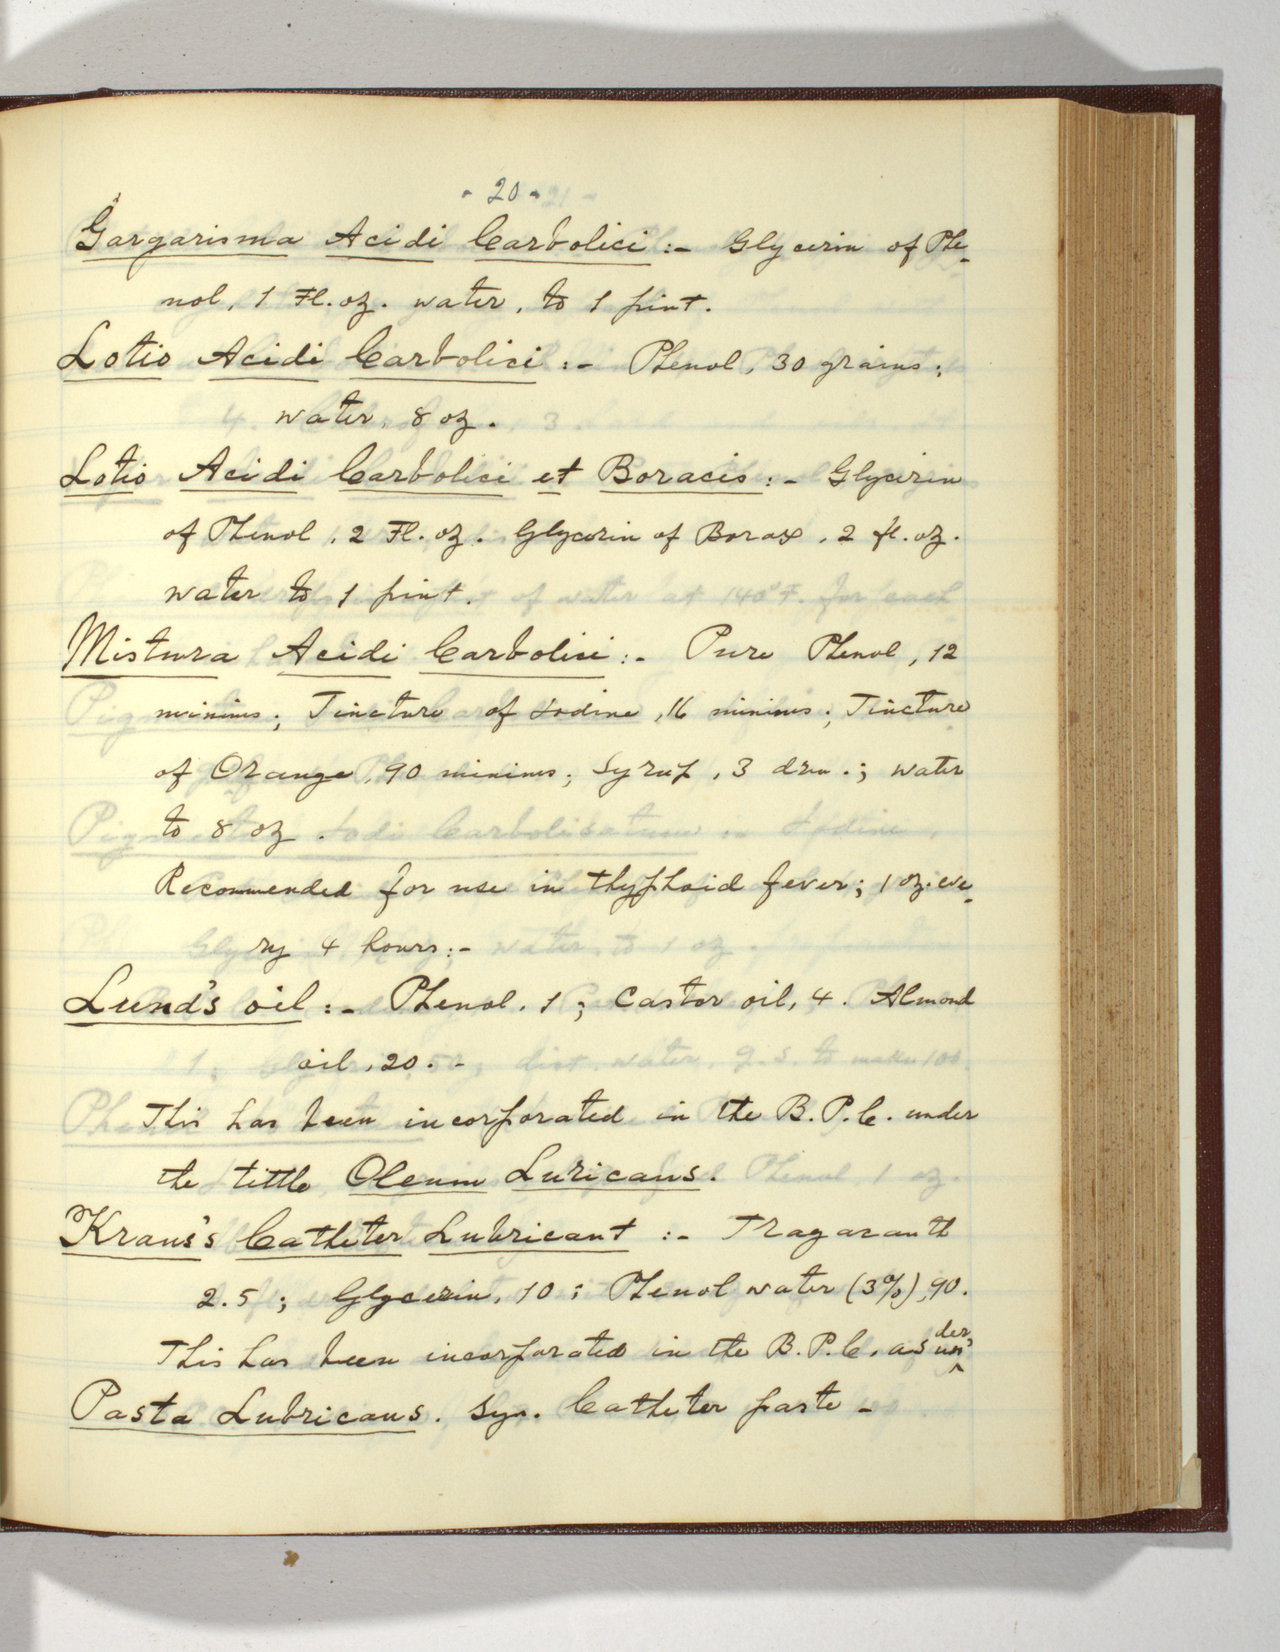 - 20 -
Gargarisma Acidi Carbolici :- Glycerin of Phe-
nol, 1 Fl. oz. water, to 1 pint.
Lotio Acidi Carbolici :- Phenol, 30 grains;
water, 8 oz.
Lotio Acidi Carbolici et Boracis :- Glycerin
of Phenol, 2 Fl. oz. Glycerin of Borax, 2 fl. oz.
water to 1 pint.
Mistura Acidi Carbolici :- Pure Phenol, 12
minims; Tincture of Iodine, 16 minims; Tincture
of Orange, 90 minims; Syrup, 3 drm.; water
to 8 oz.
Recommended for use in thyphoid fever; 1 oz. eve-
ry 4 hours :-
Lund's oil :- Phenol, 1; Castor oil, 4. Almond
oil, 20. -
This has been incorporated in the B. P. C. under
the tittle Oleum Luricans.
Kraus's Catheter Lubricant :- Tragacanth
2.5; Glycerin, 10; Phenol water (3%), 90.
This has been incorporated in the B. P. C. as under
Pasta Lubricans. Syn. Catheter paste -